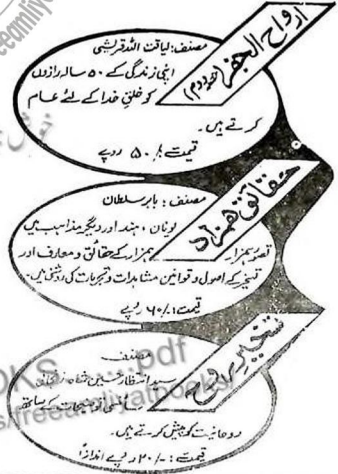 ارواح الجفر (حصہ دوم)
مصنف: لیاقت اللہ قریشی
اپنی زندگی کے ۵۰ سالہ رازوں
کو خلقِ خدا کے لئے عام
کرتے ہیں۔
قیمت :/۵۰ روپے
حقائق ہمزاد
مصنف: بابر سلطان
یونان، ہند اور دیگر مذاہب میں
تصورِ ہمزاد ہمزاد کے حقائق و معارف اور
تسخیر کے اصول و قوانین مشاہدات و تجربات کی روشنی میں۔
قیمت :/۶۰ روپے
تسخیر
مصنف
سید انتظار حسین شاہ
سائنسی توجیہات کے ساتھ
روحانیت کو پیش کرتے ہیں۔
قیمت :/۲۰ روپے اندازاً
pdf